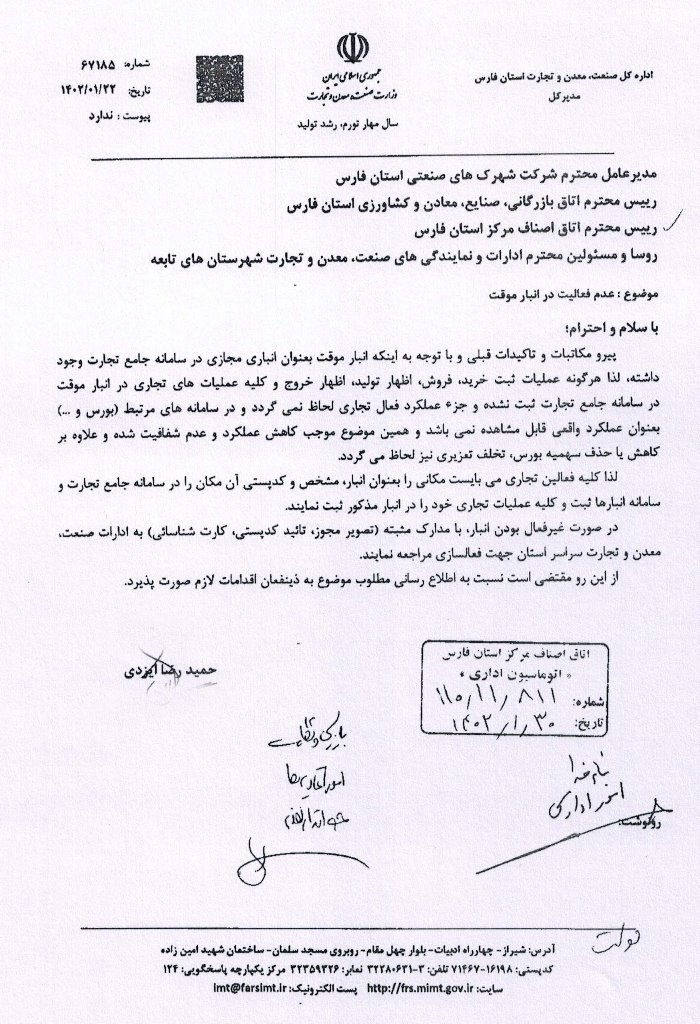 شماره: ۶۷۱۸۵
تاریخ: ۱۴۰۲/۰۱/۲۲
پیوست: ندارد
جمهوری اسلامی ایران
وزارت صنعت، معدن و تجارت
سال مهار تورم، رشد تولید
اداره کل صنعت، معدن و تجارت استان فارس
مدیر کل
مدیرعامل محترم شرکت شهرک های صنعتی استان فارس
رییس محترم اتاق بازرگانی، صنایع، معادن و کشاورزی استان فارس
رییس محترم اتاق اصناف مرکز استان فارس
روسا و مسئولین محترم ادارات و نمایندگی های صنعت، معدن و تجارت شهرستان های تابعه
موضوع : عدم فعالیت در انبار موقت
با سلام و احترام؛
پیرو مکاتبات و تاکیدات قبلی و با توجه به اینکه انبار موقت بعنوان انباری مجازی در سامانه جامع تجارت وجود
داشته، لذا هرگونه عملیات ثبت خرید، فروش، اظهار تولید، اظهار خروج و کلیه عملیات های تجاری در انبار موقت
در سامانه جامع تجارت ثبت نشده و جزء عملکرد فعال تجاری لحاظ نمی گردد و در سامانه های مرتبط (بورس و ...)
بعنوان عملکرد واقعی قابل مشاهده نمی باشد و همین موضوع موجب کاهش عملکرد و عدم شفافیت شده و علاوه بر
کاهش یا حذف سهمیه بورس، تخلف تعزیری نیز لحاظ می گردد.
لذا کلیه فعالین تجاری می بایست مکانی را بعنوان انبار، مشخص و کدپستی آن مکان را در سامانه جامع تجارت و
سامانه انبارها ثبت و کلیه عملیات تجاری خود را در انبار مذکور ثبت نمایند.
در صورت غیرفعال بودن انبار، با مدارک مثبته (تصویر مجوز، تائید کدپستی، کارت شناسائی) به ادارات صنعت،
معدن و تجارت سراسر استان جهت فعالسازی مراجعه نمایند.
از این رو مقتضی است نسبت به اطلاع رسانی مطلوب موضوع به ذینفعان اقدامات لازم صورت پذیرد.
حمید رضا ایزدی
اتاق اصناف مرکز استان فارس
« اتوماسیون اداری »
شماره: ۱۱۰,۱۱/۸۱۱
تاریخ: ۱۴۰۲/۱/۳۰
بنام خدا
اداری
رونوشت:
آدرس: شیراز- چهارراه ادبیات- بلوار چهل مقام- روبروی مسجد سلمان- ساختمان شهید امین زاده
کدپستی: ۱۶۱۹۸-۷۱۴۶۷ تلفن: ۳-۳۲۲۸۰۶۳۱ نمابر: ۳۲۳۵۹۳۲۶ مرکز یکپارچه پاسخگویی: ۱۲۴
سایت: http://frs.mimt.gov.ir پست الکترونیک: imt@farsimt.ir